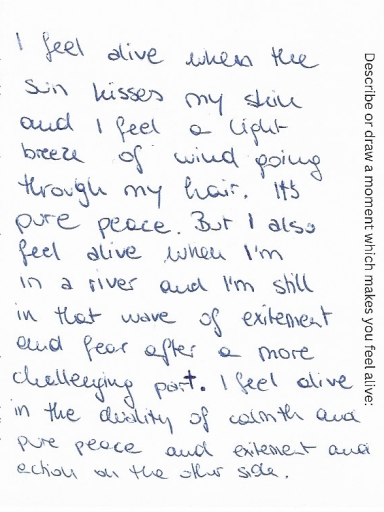 I feel alive when the
sun kisses my skin
and I feel a light
breeze of wind going
through my hair. It's
pure peace. But I also
feel alive when I'm
in a river and I'm still
in that wave of exitement
and fear after a more
challenging part. I feel alive
in the duality of calmth and
pure peace and exitement and
action on the other side.
Describe or draw a moment which makes you feel alive: